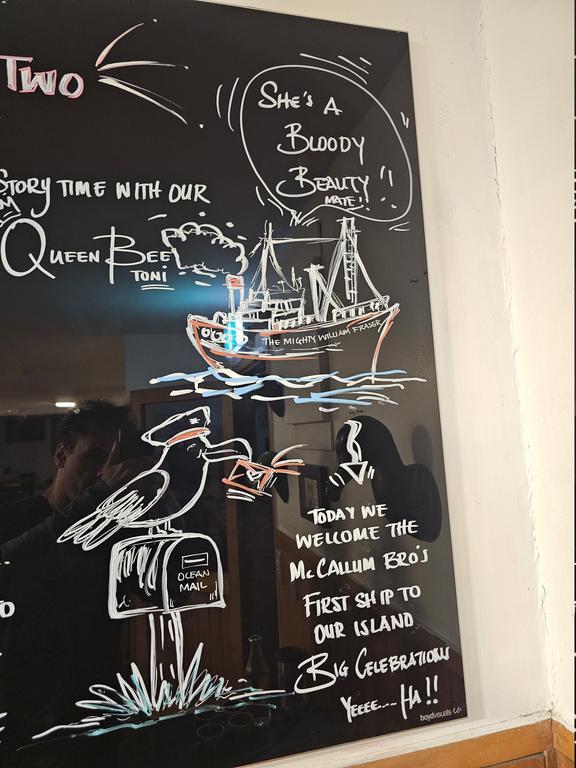 Two
She's A
Bloody
Beauty!!
Mate!!
Story time with our
Queen Bee
Toni
The Mighty William Fraser
Ocean
Mail
Today we
welcome the
McCallum Bro's
First ship to
our island
Big Celebrations
Yeeee... Ha!!
boydvisuals